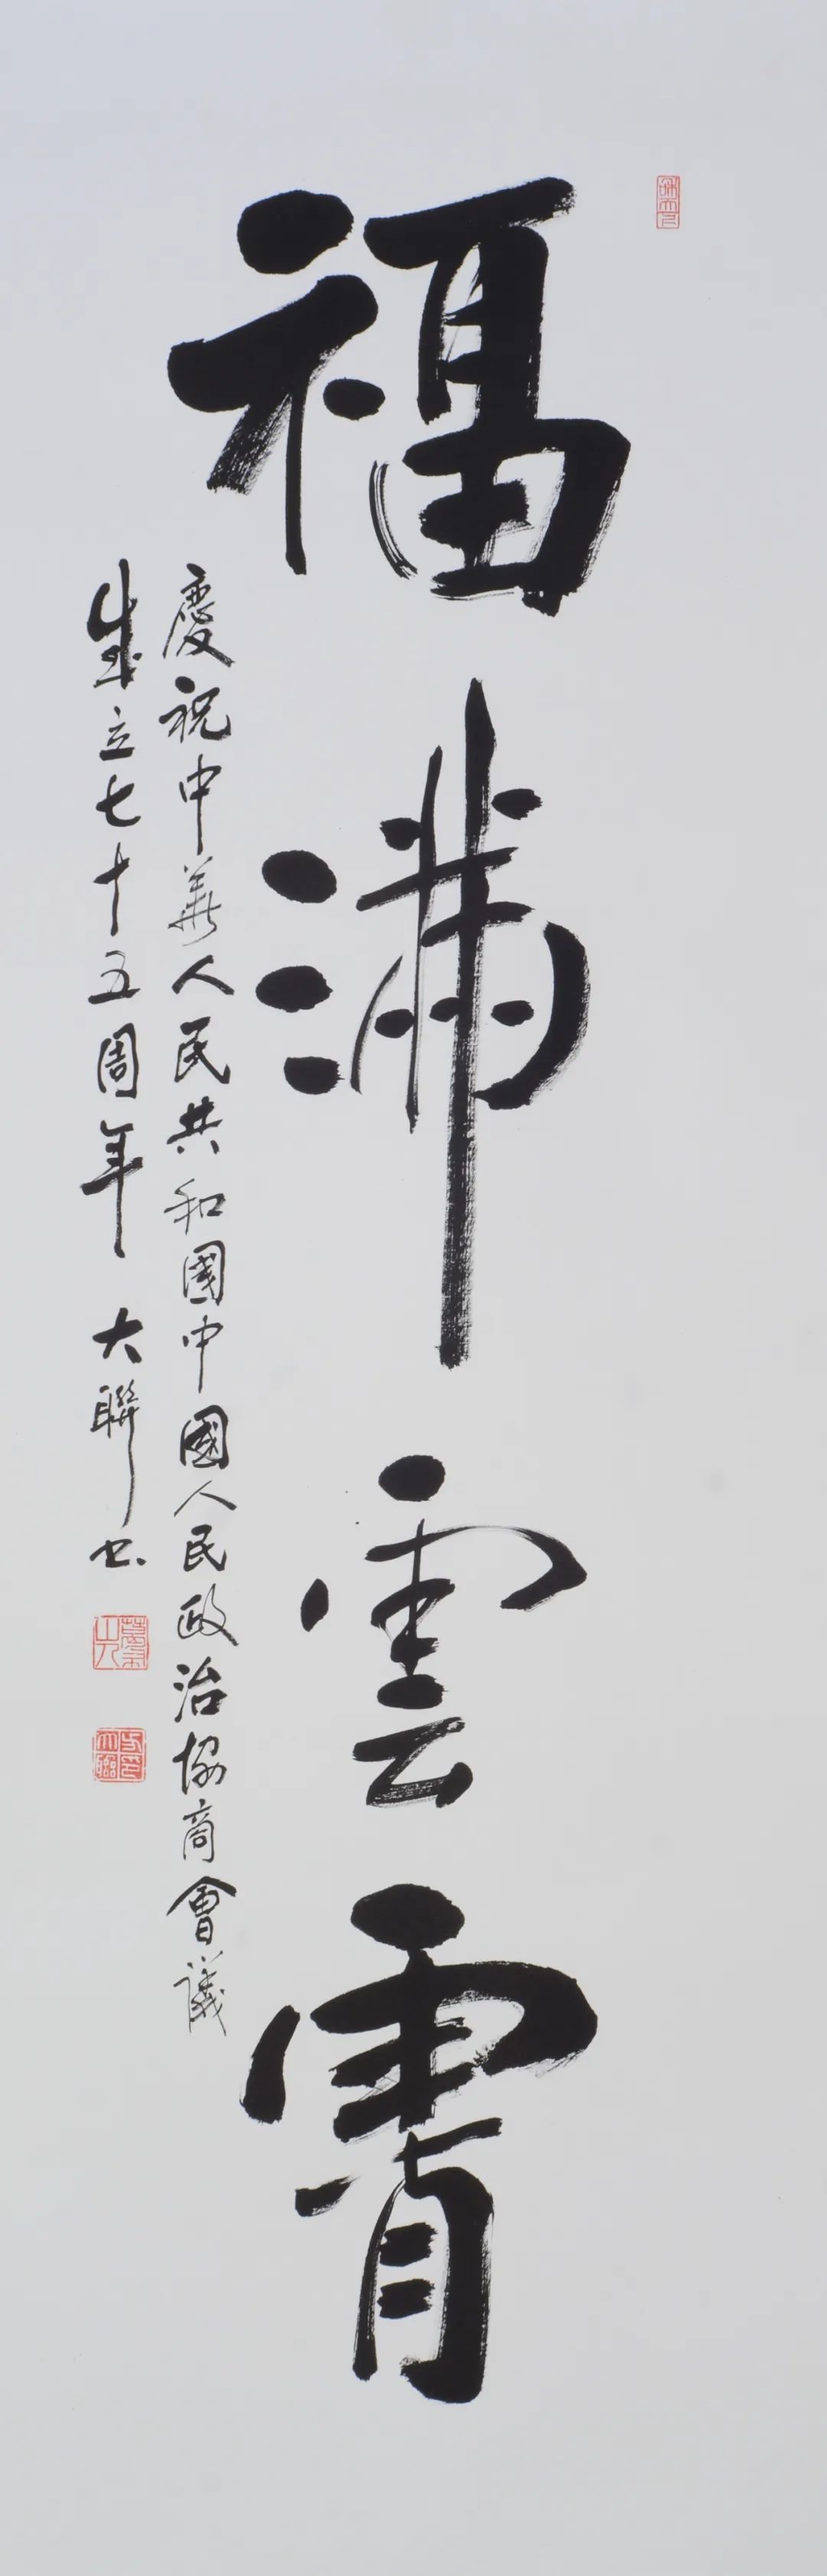 福满雲霄
慶祝中華人民共和國中國人民政治協商會議
成立七十五周年 大聯书